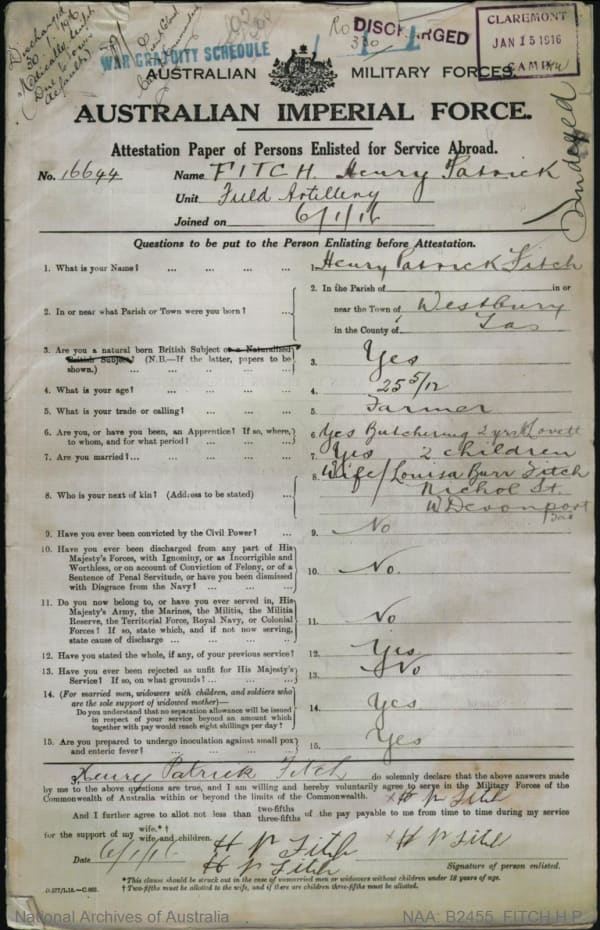 Discharged
30 1916
Medically Unfit
(Due to
WAR GRATUITY SCHEDULE
DISCHARGED
CLAREMONT
JAN 15 1916
CAMP
AUSTRALIAN MILITARY FORCES
AUSTRALIAN IMPERIAL FORCE.
Attestation Paper of Persons Enlisted for Service Abroad.
No. 16644 Name FITCH. Henry Patrick
Unit Field Artillery
Joined on 6/1/16
Questions to be put to the Person Enlisting before Attestation.
1. What is your Name? ... ... ... 1. Henry Patrick Fitch
2. In or near what Parish or Town were you born? ... 2. In the Parish of in or
near the Town of Westbury
in the County of Tas
3. Are you a natural born British Subject or a Naturalized
British Subject? (N.B.—If the latter, papers to be
shown.) ... ... ... ... 3. Yes
4. What is your age? ... ... ... 4. 25 5/12
5. What is your trade or calling? ... ... ... 5. Farmer
6. Are you, or have you been, an Apprentice? If so, where,
to whom, and for what period? ... ... 6. Yes Butchering 2 yrs Lovett
7. Are you married? ... ... ... ... 7. Yes 2 children
8. Who is your next of kin? (Address to be stated) ... 8. Wife/Louisa Burr Fitch
Nichol St.
W Devonport
Tas
9. Have you ever been convicted by the Civil Power? ... 9. No
10. Have you ever been discharged from any part of His
Majesty's Forces, with Ignominy, or as Incorrigible and
Worthless, or on account of Conviction of Felony, or of a
Sentence of Penal Servitude, or have you been dismissed
with Disgrace from the Navy? ... ... 10. No.
11. Do you now belong to, or have you ever served in, His
Majesty's Army, the Marines, the Militia, the Militia
Reserve, the Territorial Force, Royal Navy, or Colonial
Forces? If so, state which, and if not now serving,
state cause of discharge ... ... ... 11. No
12. Have you stated the whole, if any, of your previous service? 12. Yes
13. Have you ever been rejected as unfit for His Majesty's
Service? If so, on what grounds? ... ... 13. No
14. (For married men, widowers with children, and soldiers who
are the sole support of widowed mother)—
Do you understand that no separation allowance will be issued
in respect of your service beyond an amount which
together with pay would reach eight shillings per day? 14. Yes
15. Are you prepared to undergo inoculation against small pox
and enteric fever? ... ... ... 15. Yes
I, Henry Patrick Fitch do solemnly declare that the above answers made
by me to the above questions are true, and I am willing and hereby voluntarily agree to serve in the Military Forces of the
Commonwealth of Australia within or beyond the limits of the Commonwealth. x H P Fitch
And I further agree to allot not less than two-fifths three-fifths of the pay payable to me from time to time during my service
for the support of my wife.*† wife and children. H P Fitch x H P Fitch
Date 6/1/16 H P Fitch Signature of person enlisted.
*This clause should be struck out in the case of unmarried men or widowers without children under 18 years of age.
† Two-fifths must be allotted to the wife, and if there are children three-fifths must be allotted.
National Archives of Australia NAA: B2455, FITCH H P